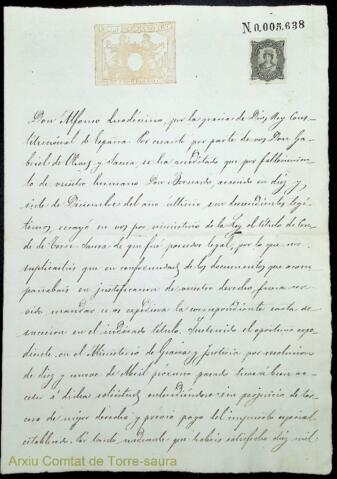 N.0,005.638
Don Alfonso duodécimo, por la gracia de Dios, Rey Cons-
titucional de España. Por cuanto por parte de vos Don Ga-
briel de Olives y Saura, se ha acreditado que por fallecimien-
to de vuestro hermano Don Bernardo, acaecido en diez y
siete de Diciembre del año último sin descendientes legí-
timos, recayó en vos por ministerio de la Ley el título de Con-
de de Torre-Saura de que fué poseedor legal, por lo que me
suplicabais que en conformidad de los documentos que acom-
pañabais en justificacion de vuestro derecho, fuera ser-
vido mandar se os expidiera la correspondiente carta de
sucesion en el indicado título. Instruido el oportuno espe-
diente en el Ministerio de Gracia y Justicia por resolucion
de diez y nueve de Abril próximo pasado tuve á bien ac-
ceder á dicha solicitud entendiéndose sin perjuicio de ter-
cero de mejor derecho y previo pago del impuesto especial
establecido. Por tanto, y habeis satisfecho diez mil
Arxiu Comtat de Torre-saura